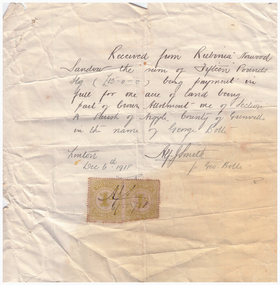 Received from Rubenia Inwood
Sandow the sum of Fifteen Pounds
Stg (£15-0-0) being payment in
full for one acre of land being
part of Crown Allotment one of Section
A Parish of Argyle County of Grenville
in the name of George Bolt
Linton
Dec 6th 1915
Smith
for Geo. Bolt